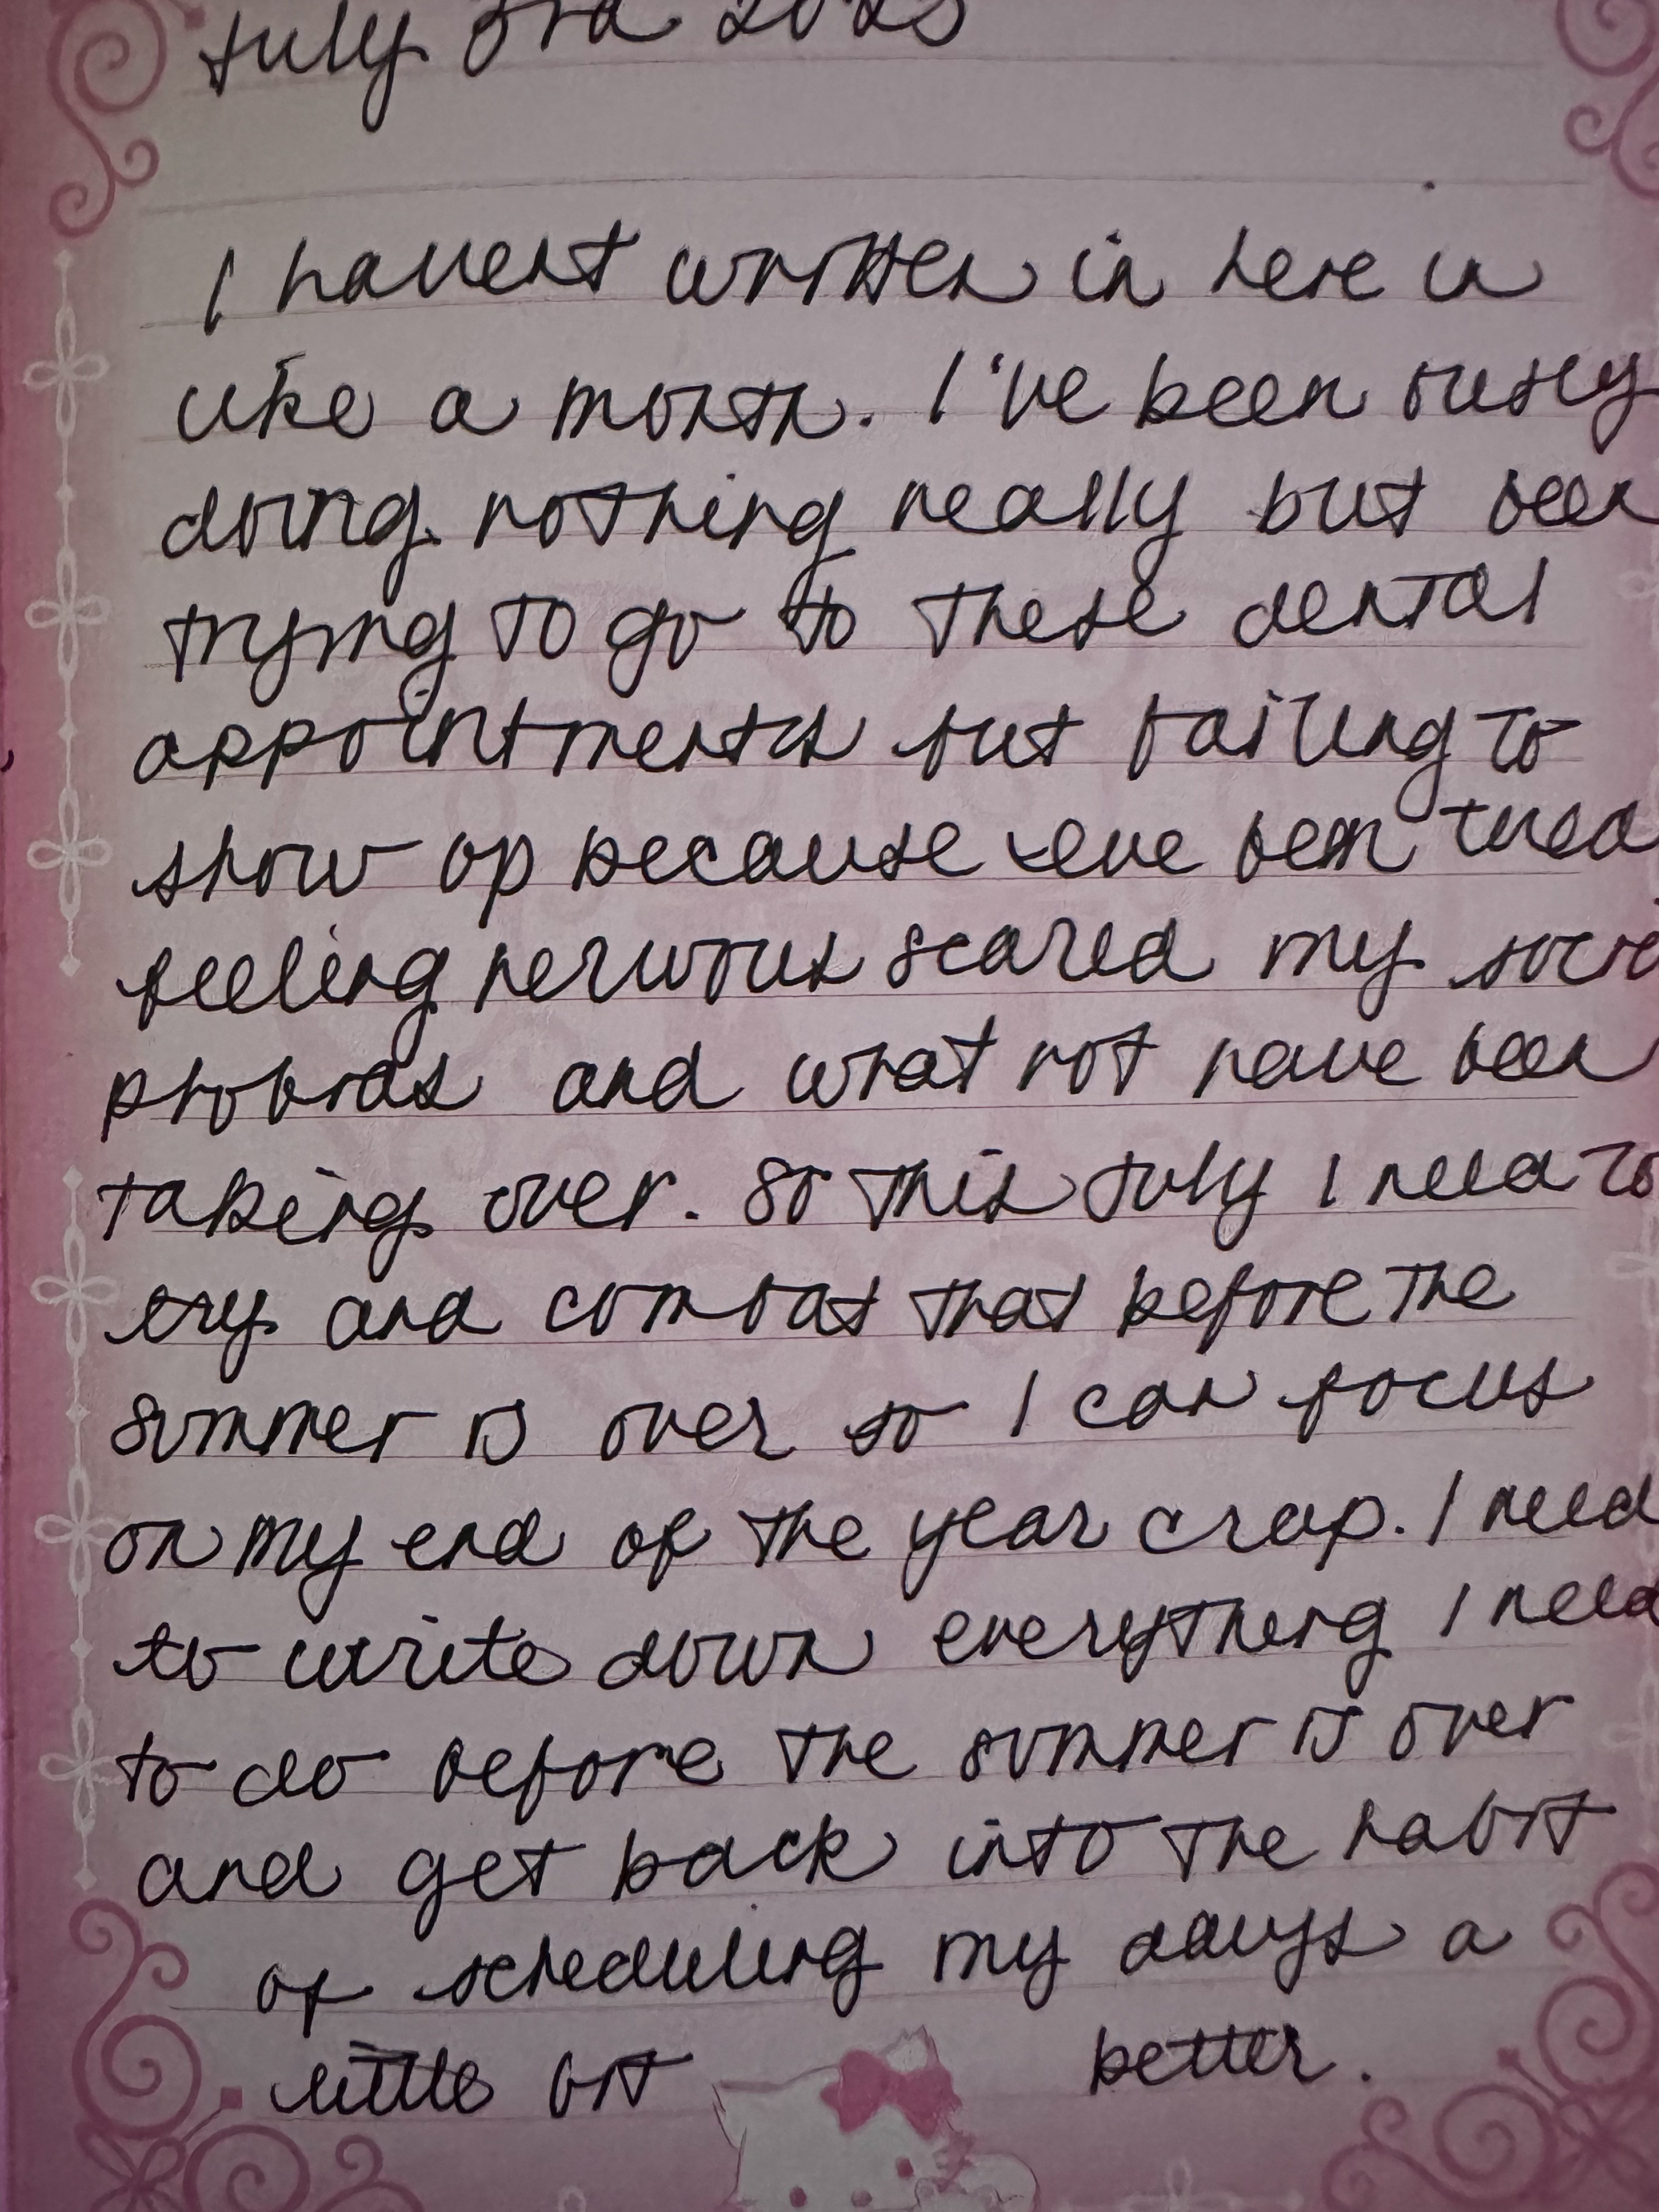 July 3rd 2025
I havent written in here in
like a month. I've been busy
doing nothing really but been
trying to go to these dental
appointments but failing to
show up because ive been tired
feeling nervous scared my social
phobias and what not have been
taking over. So this July I need to
try and combat that before the
summer is over so I can focus
on my end of the year crap. I need
to write down everything I need
to do before the summer is over
and get back into the habit
of scheduling my days a
little bit better.